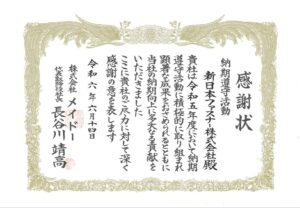 感謝状
納期遵守活動
新日本ファスナー株式会社殿
貴社は令和五年度において納期
遵守活動に積極的に取り組まれ
顕著な成果をおさめられるとともに
当社の納期向上に多大なる貢献を
いただきました
ここに貴社のご尽力に対して深く
感謝の意を表します
令和六年六月十四日
株式会社メイドー
代表取締役社長 長谷川靖高